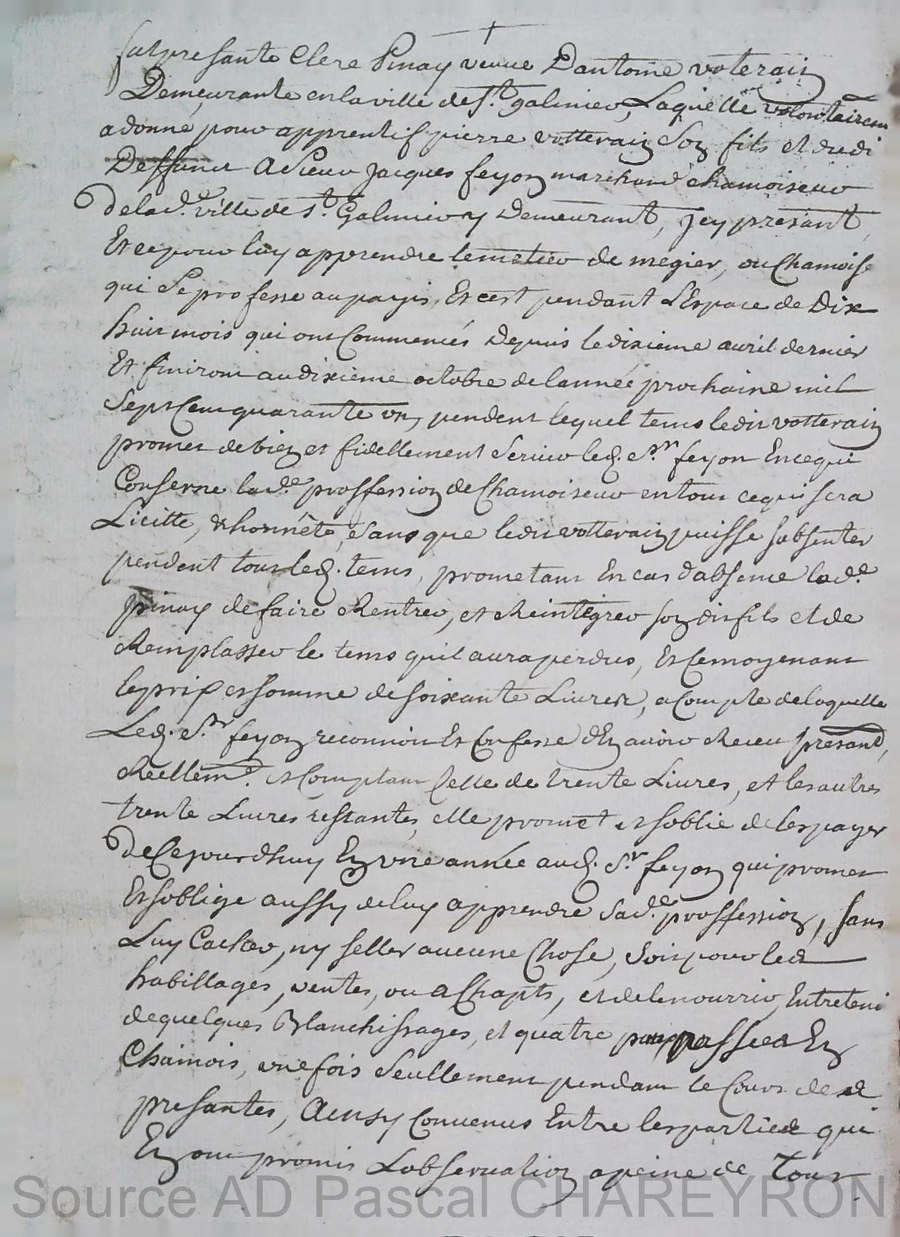 fut presante Clere pinay veuve Dantoine voterain
Demeurante en la ville de St. galmier, Laquelle volontairem
a donné pour apprentif pierre votterain son fils et dudi
Deffunct a Sieur Jacques feyon marchand chamoiseur
de lad. ville de St. Galmier y Demeurant, Jcy présant,
Et ce pour luy apprendre le metier de megier, ou Chamoise
qui Se professe au payis, Et cest pendant L'Espace de Dix
huit mois qui ont Commencés Depuis le dixieme avril dernier
Et finiront au dixieme octobre de lannée prochaine mil
Sept Cent quarante un, pendent lequel tems ledit votterain
promet de bien et fidellement Servir led. Sr. feyon En ce qui
Conserne lad.e proffession de Chamoiseur en tout ce qui sera
Licitte, & honnête, Sans que ledit votterain puisse sabsenter
pendent tout led. tems, prometant En cas d'absence lad.e
pinay de faire Rentrer, et Reintégrer son dit fils et de
Remplasser le tems quil aura perdus, Et Cemoyenant
le prix et somme de soixante Livres, a Compte de laquelle
Led. Sr. feyon reconnoit Et Confesse d'En avoir Receu présant,
Réellemt. et Comptant Celle de trente Livres, et les autres
trente Livres restantes, elle promet et soblie de les payer
de Ce jourdhuy En une année aud. Sr. feyon qui promet
Et soblige aussy de luy apprendre Sad.e proffession, sans
Luy Cacher, ny seller aucune Chose, Soit pour les
habillages, ventes, ou achapts, et de le nourrir, Entreteni
de quelques Blanchissages, et quatre passees En
Chamois, une fois Seullement pendant le Cours des
presantes, Ainsy Convenus Entre les parties qui
En ont promis L'observation a peine de tous
Source AD Pascal CHAREYRON